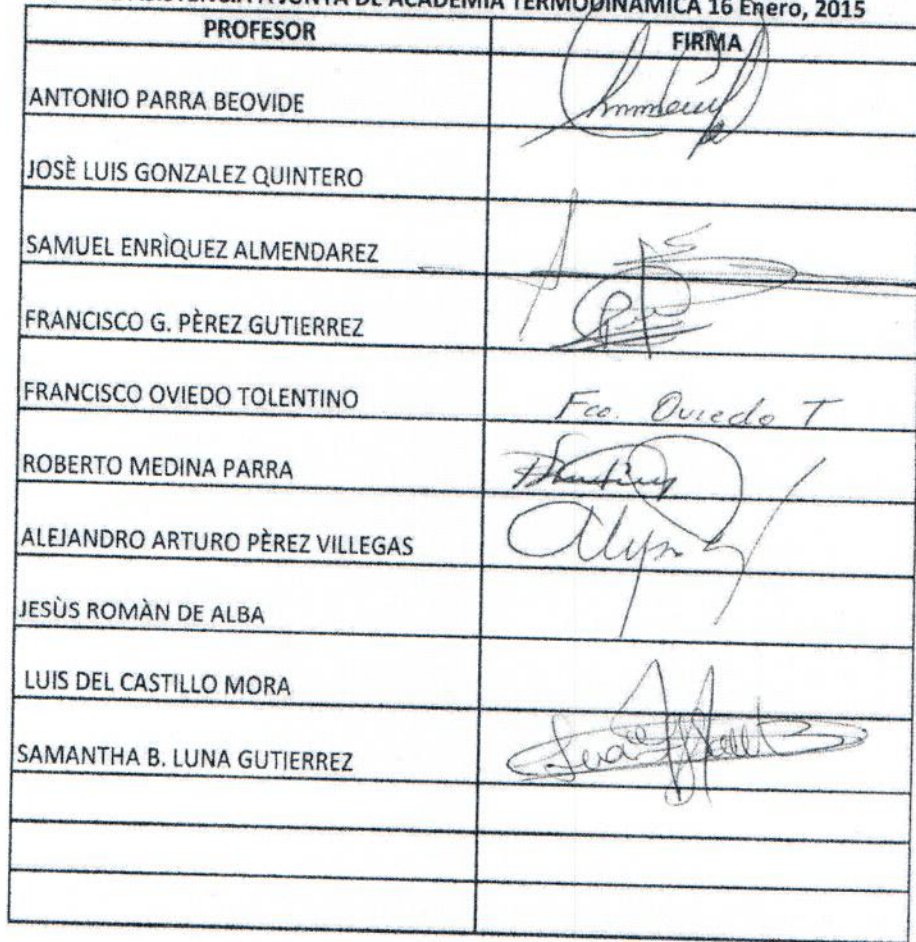 ASISTENCIA A JUNTA DE ACADEMIA TERMODINÀMICA 16 Enero, 2015
PROFESOR FIRMA
ANTONIO PARRA BEOVIDE
JOSÈ LUIS GONZALEZ QUINTERO
SAMUEL ENRÌQUEZ ALMENDAREZ
FRANCISCO G. PÈREZ GUTIERREZ
FRANCISCO OVIEDO TOLENTINO Fco. Oviedo T
ROBERTO MEDINA PARRA
ALEJANDRO ARTURO PÈREZ VILLEGAS
JESÙS ROMÀN DE ALBA
LUIS DEL CASTILLO MORA
SAMANTHA B. LUNA GUTIERREZ